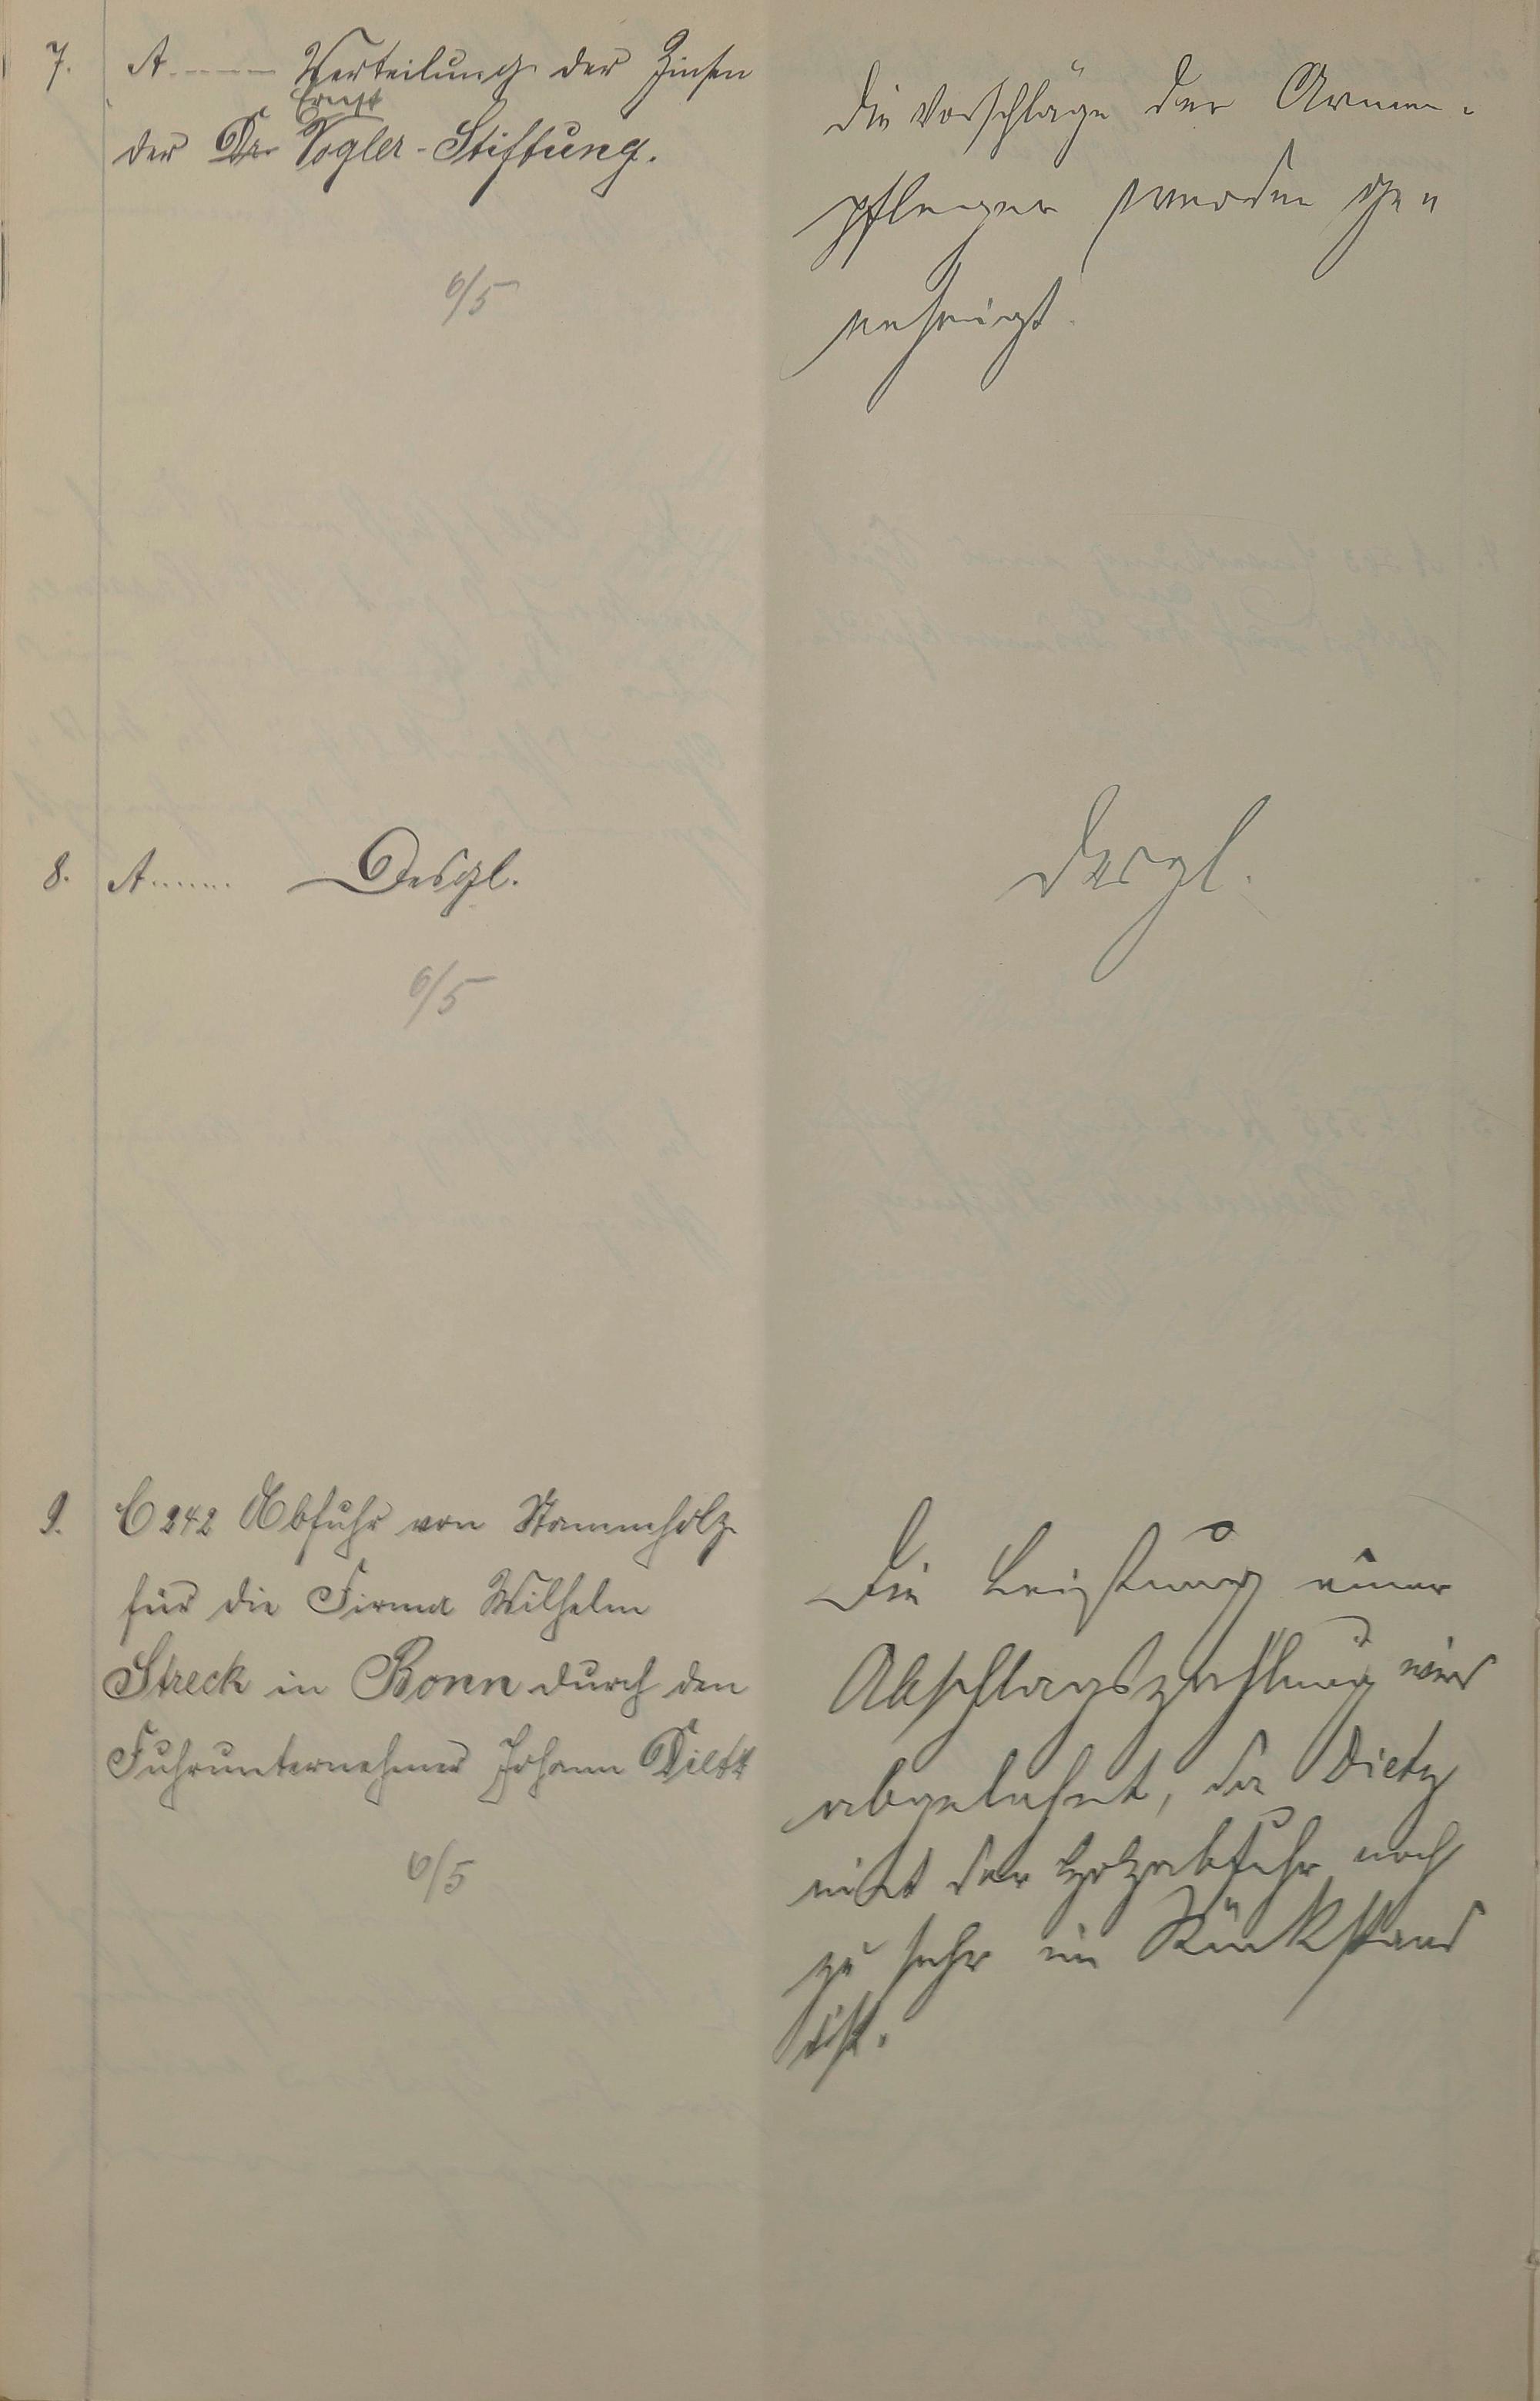 7. A ------ Verteilung der Zinsen
Ernst
der Dr. Vogler-Stiftung.
6/5
Die Vorschläge der Armen-
pfleger werden ge-
nehmigt.
8. A ...... Desgl.
6/5
Desgl.
9. C 242 Abfuhr von Stammholz
für die Firma Wilhelm
Streck in Bonn durch den
Fuhrunternehmer Johann
6/5
Die Leistung einer
Abschlagszahlung wird
abgelehnt, da Dietz
mit der Holzabfuhr noch
zu sehr im Rückstand
ist.